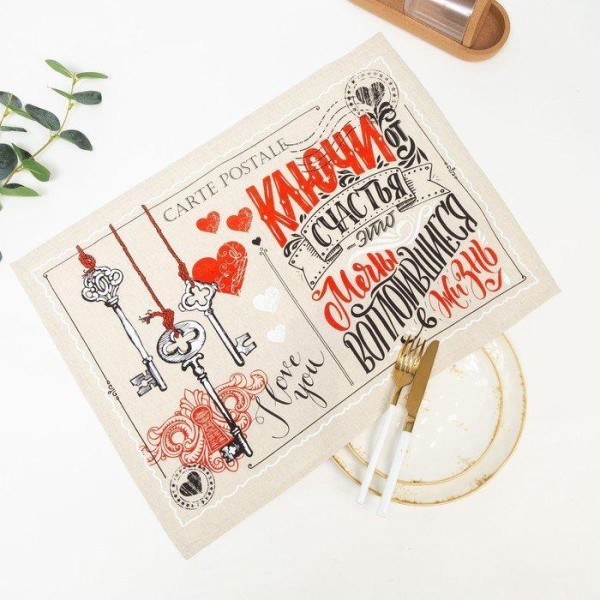 CARTE POSTALE
КЛЮЧИ ОТ
СЧАСТЬЯ
ЭТО
Мечты
ВОПЛОТИВШИЕСЯ
в ЖИЗНЬ
I love
you